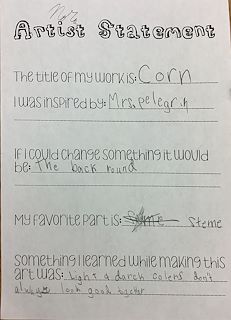 Artist Statement
The title of my work is: Corn
I was inspired by: Mrs. Pelegrin
If I could change something it would
be: The back round
My favorite part is: Steme
Something I learned while making this
art was: Light & darck colers don't
always look good together